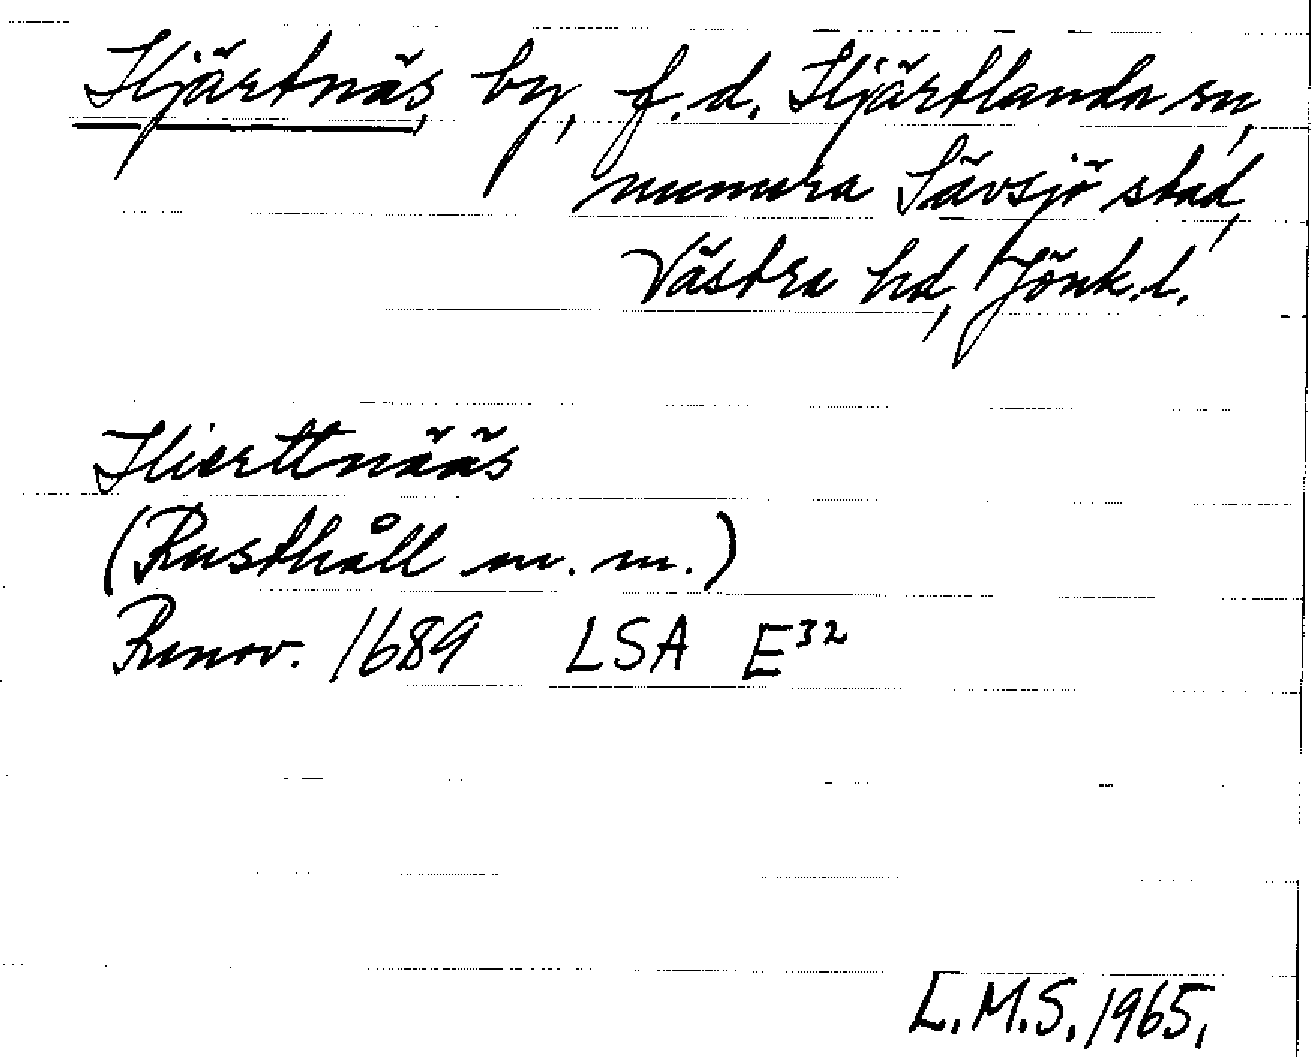 Hjärtnäs by, f.d. Hjärtlanda sn,
numera Sävsjö stad,
Västra hd, Jönk.l.
Hierttnääs
(Rusthåll m.m.)
Renov. 1689 LSA E³²
L.M.S. 1965.